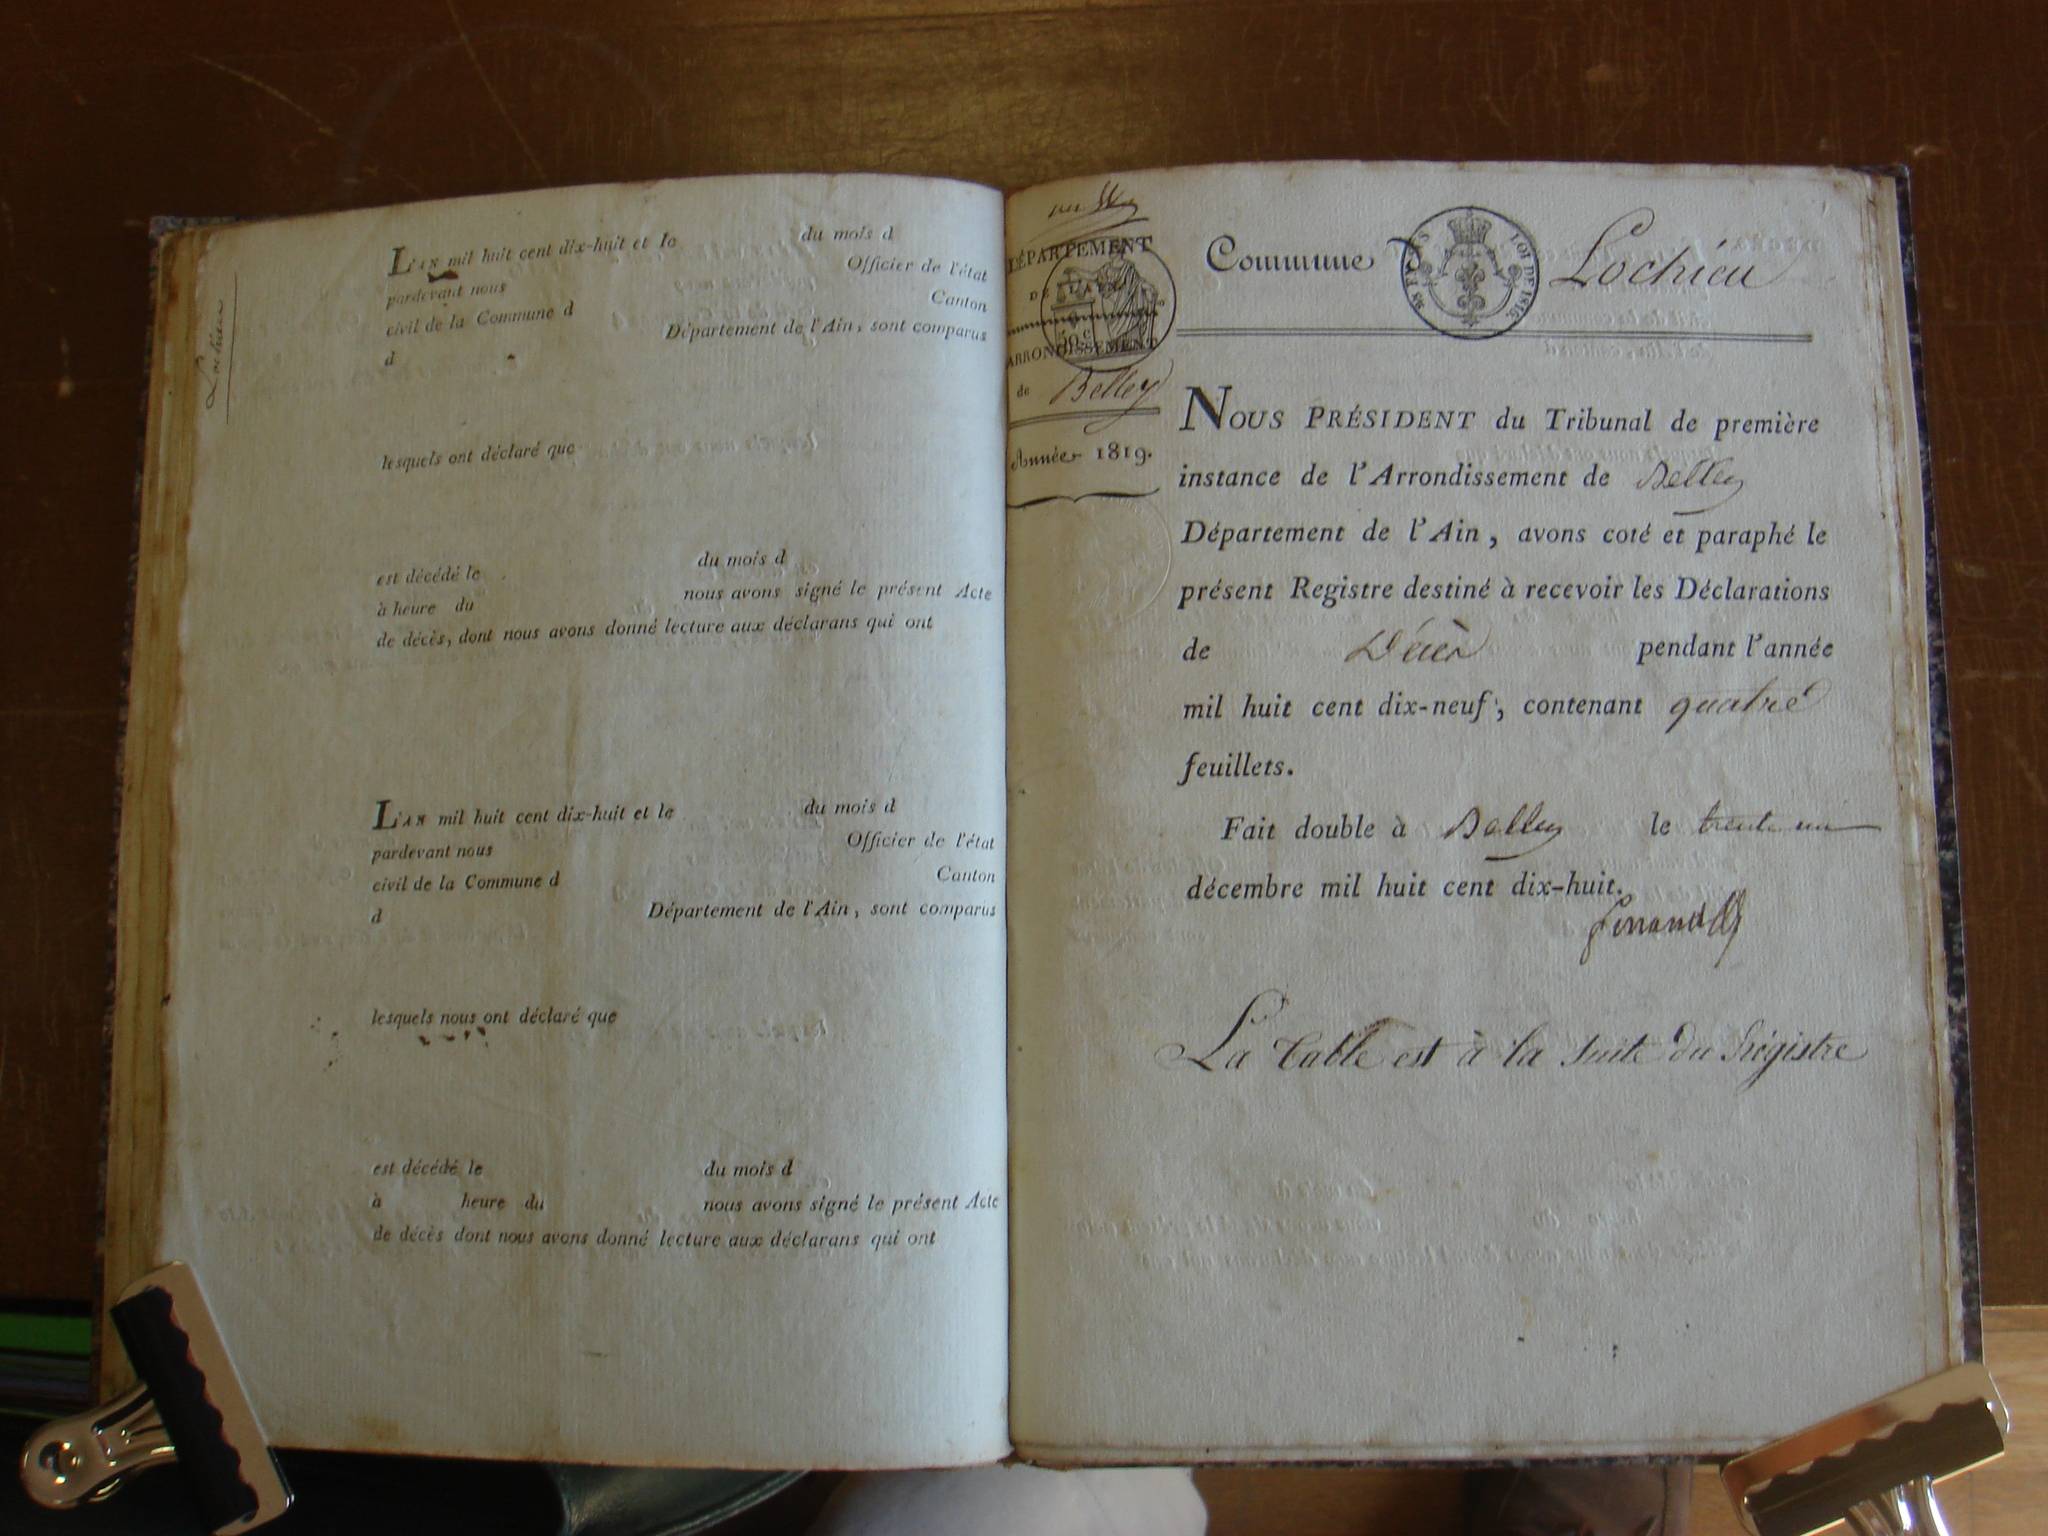 Lochieu
L'AN mil huit cent dix-huit et le du mois d
pardevant nous Officier de l'état
civil de la Commune d Canton
d Département de l'Ain, sont comparus
lesquels ont déclaré que
est décédé le du mois d
à heure du nous avons signé le présent Acte
de décès, dont nous avons donné lecture aux déclarans qui ont
L'AN mil huit cent dix-huit et le du mois d
pardevant nous Officier de l'état
civil de la Commune d Canton
d Département de l'Ain, sont comparus
lesquels nous ont déclaré que
est décédé le du mois d
à heure du nous avons signé le présent Acte
de décès dont nous avons donné lecture aux déclarans qui ont
DÉPARTEMENT
DE L'AIN
50 c
ARRONDISSEMENT
de Belley
Année 1819.
Commune d Lochieu
LOI DE 1816.
NOUS PRÉSIDENT du Tribunal de première
instance de l'Arrondissement de Belley
Département de l'Ain, avons coté et paraphé le
présent Registre destiné à recevoir les Déclarations
de Décès pendant l'année
mil huit cent dix-neuf, contenant quatre
feuillets.
Fait double à Belley le trente un
décembre mil huit cent dix-huit.
La Table est à la suite du Régistre